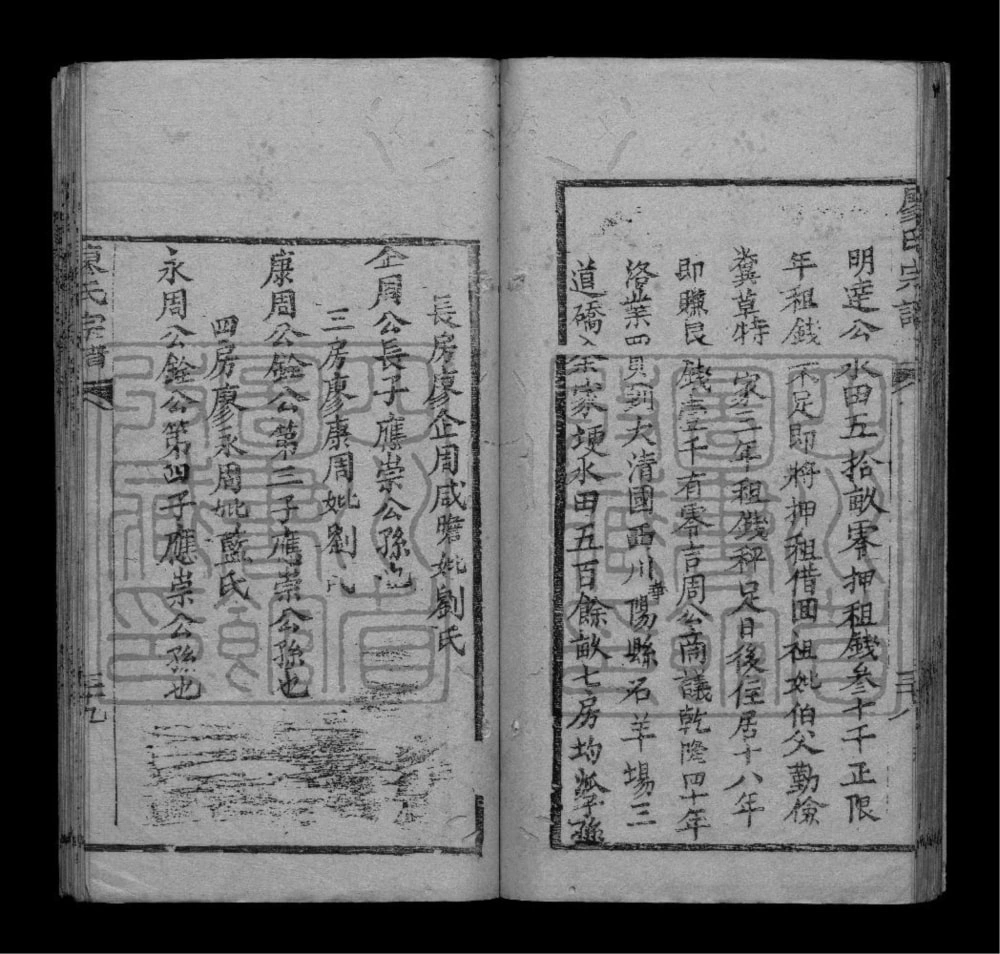 廖氏宗譜
明達公 水田五拾畝零押租錢叁十千正限
年租錢 不足即將押租借回祖妣伯父勤儉
糞草特 家三年租錢秤足日後住居十八年
即賺民 錢壹千有零言周公商議乾隆四十年
洛業四 到大清國西川華陽縣石羊場三
道橋 余家埂水田五百餘畝七房均
三十八
長房廖企周咸瞻妣劉氏
企周公長子應崇公孫也
三房廖康周妣劉氏
康周公銓公第三子應崇公孫也
四房廖永周妣藍氏
永周公銓公第四子應崇公孫也
氏宗譜
三十九